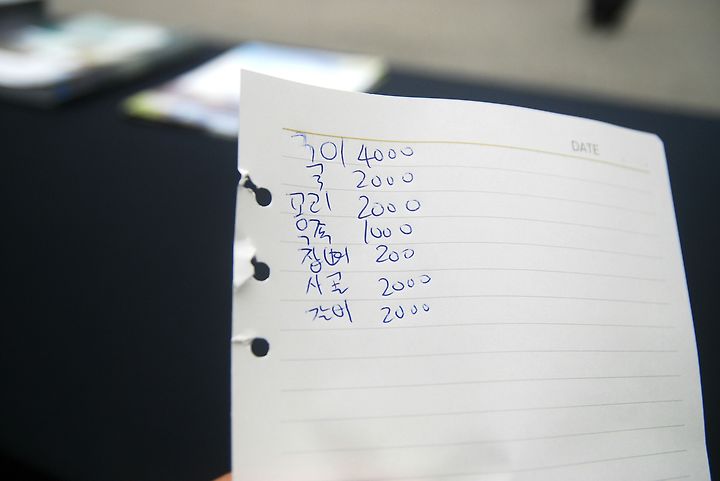 DATE
구이 4000
국 2000
꼬리 2000
우족 1000
잡뼈 200
사골 2000
갈비 2000